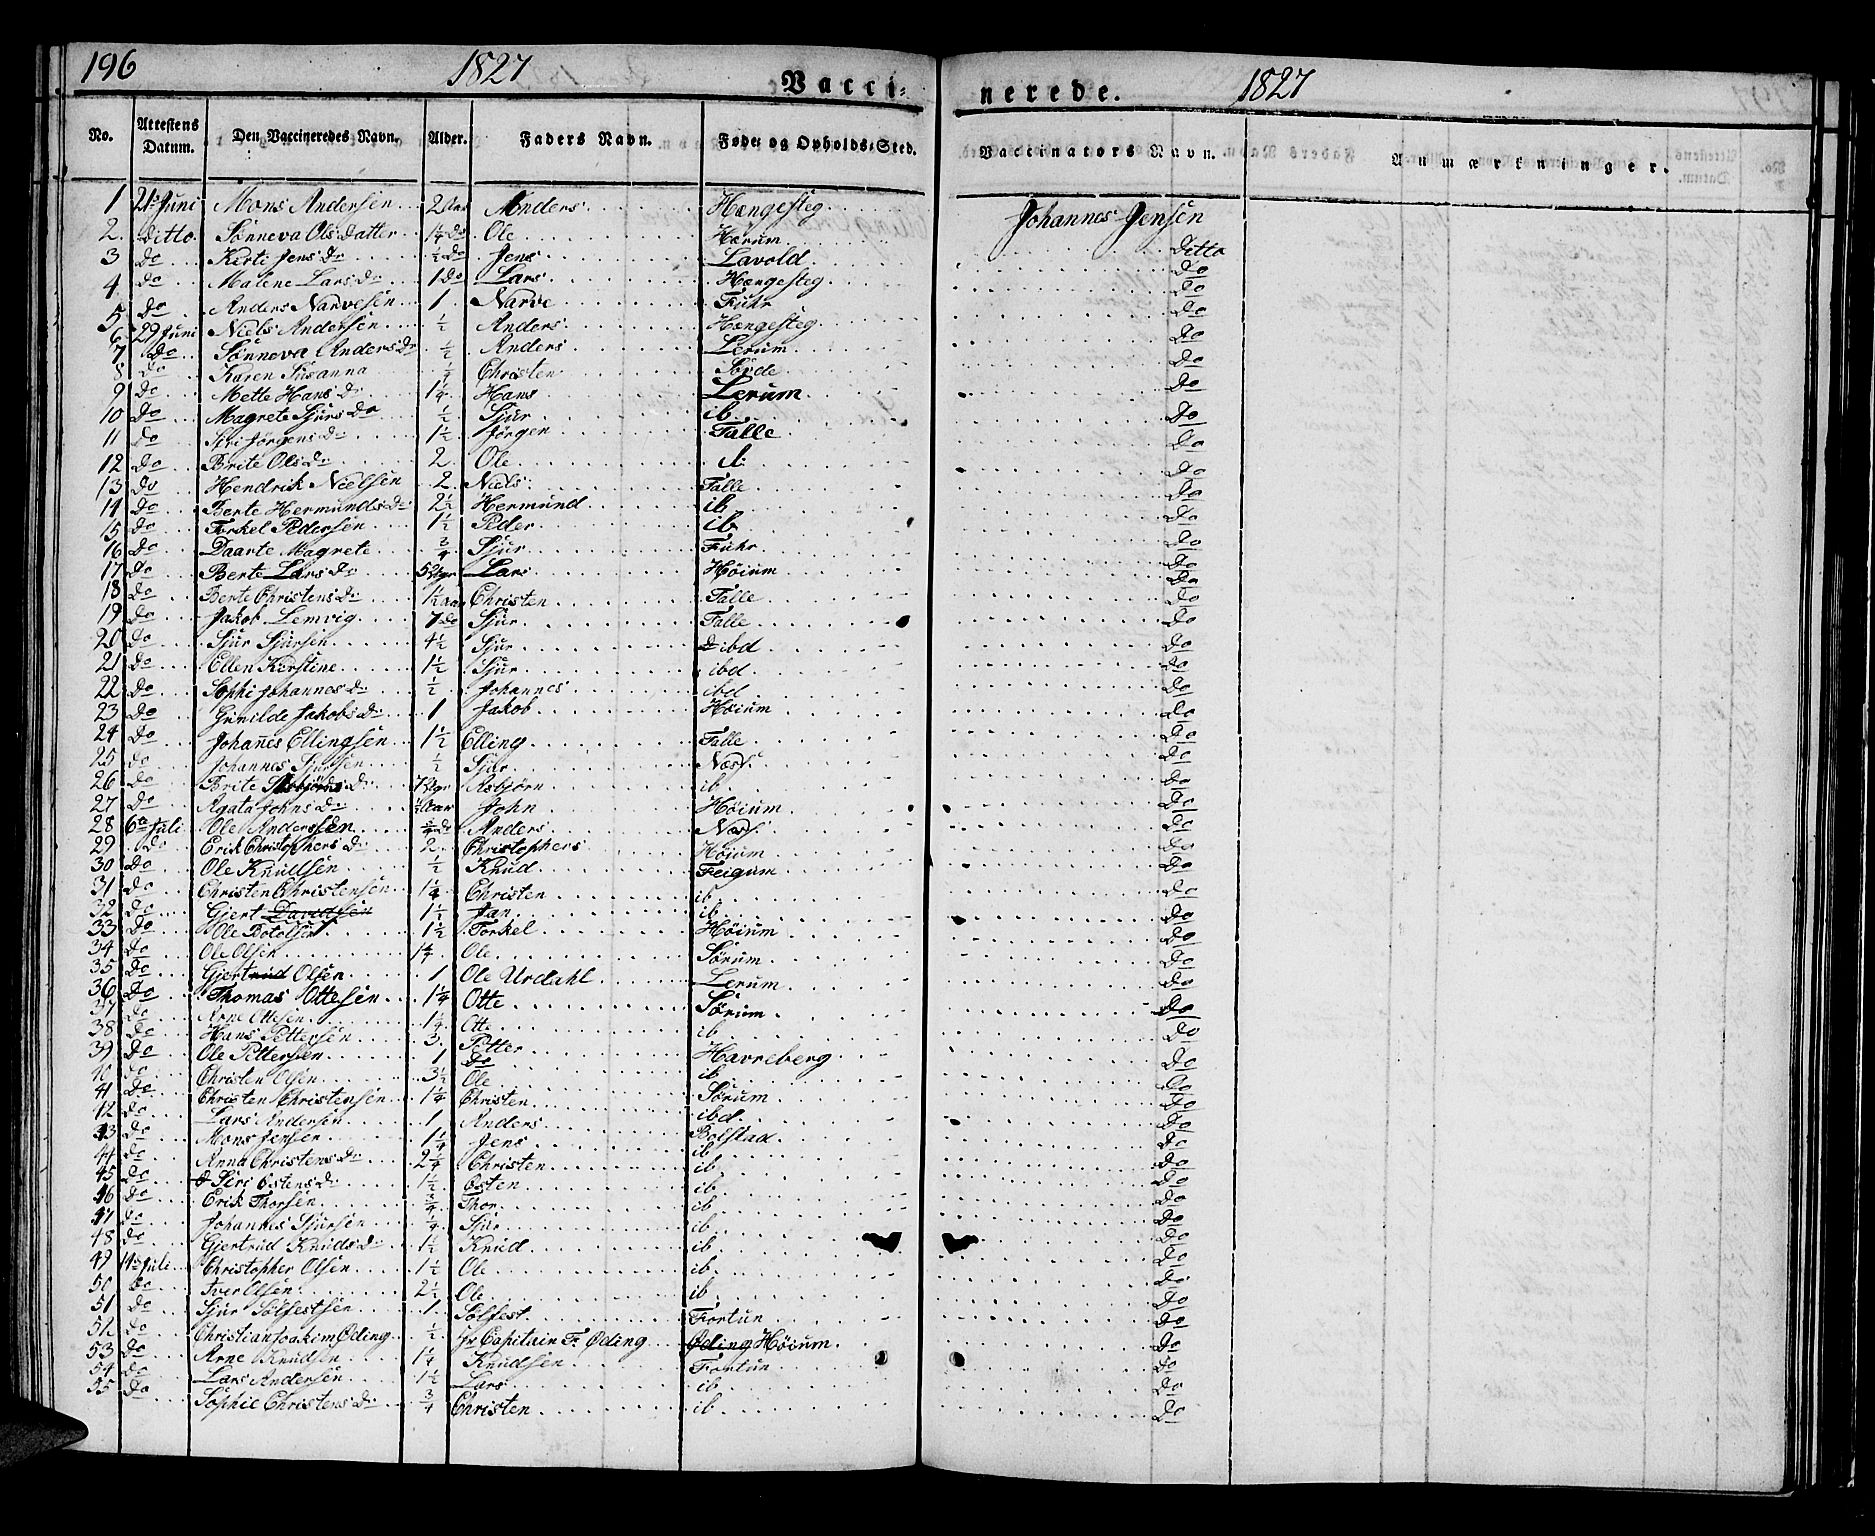 196 1827 Vacci= nerede. 1827
No. Attestens Datum. Den Vaccineredes Navn. Alder. Faders Navn. Føde= og Opholds=Sted. Vaccinators Navn. Anmærkninger.
1 21 Juni Mons Andersen 2 Aar Anders Hængesteg Johannes Jensen
2 Ditto Sønneva Ols Datter 1¼ Do Ole Hærum Ditto
3 Do Kirti Jens Dr ½ Do Jens Lavold Do
4 Do Malene Lars Dr 1 Do Lars Hængesteg Do
5 Do Anders Narvesen 1 Narve Fuhr Do
6 29 Juni Niels Andersen ½ Anders Hængesteg Do
7 Do Sønneva Anders Dr ½ Anders Lerum Do
8 Do Karen Susanna Christen Sørde Do
9 Do Mette Hans Dr 1¼ Hans Lerum Do
10 Do Magrete Sjurs Dr ½ Sjur ib Do
11 Do Siri Jørgens Dr 1½ Jørgen Talle Do
12 Do Brite Ols Dr 2 Ole ib Do
13 Do Hendrik Nielsen 2 Niels Talle Do
14 Do Berte Hermunds Dr 2½ Hermund ib Do
15 Do Torkel Pedersen 1½ Peder ib Do
16 Do Daarte Magrete ¾ Sjur Fuhr Do
17 Do Berte Lars Dr 5 Uger Lars Høium Do
18 Do Berte Christens Dr 1½ Aar Christen Talle Do
19 Do Jakob Lemvig 7 Do Sjur Talle Do
20 Do Sjur Sjursen 4½ Sjur ibd Do
21 Do Ellen Kirstine 1½ Sjur ibd Do
22 Do Sophi Johannes Dr ½ Johannes ibd Do
23 Do Gunilde Jakobs Dr 1 Jakob Høium Do
24 Do Johannes Ellingsen 1½ Elling Talle Do
25 Do Johannes Sjursen ½ Sjur Næss Do
26 Do Brite Asbjørns Dr 7 Uger Asbjørn ib Do
27 Do Agata Johns Dr ½ Aar John Høium Do
28 6 Juli Ole Anderssen ¾ Do Anders Næss Do
29 Do Erik Christophers Dr 2 Christophers Høium Do
30 Do Ole Knudsen ½ Knud Feigum Do
31 Do Christen Christensen 1¼ Christen ib Do
32 Do Gjert Davidsen 1½ Jan ib Do
33 Do Ole Botolsen 1½ Torkel Høium Do
34 Do Ole Olsen 1¼ Ole Sørum Do
35 Do Gjertrud Olsen 1 Ole Urdahl Lerum Do
36 Do Thomas Ottesen 1¼ Otte Sørum Do
37 Do Arne Ottesen 1¼ Otte ib Do
38 Do Hans Pettersen 3 Petter Havreberg Do
39 Do Ole Pettersen 1 Do ib Do
40 Do Christen Olsen 3½ Ole Sørum Do
41 Do Christen Christensen 1¼ Christen ibd Do
42 Do Lars Andersen 1 Anders Bolstad Do
43 Do Mons Jensen 1¼ Jens ib Do
44 Do Anna Christens Dr 2¼ Christen ib Do
45 Do Siri Østens Dr 1½ Østen ib Do
46 Do Erik Thorsen ¾ Thor ib Do
47 Do Johannes Sjursen ¼ Sjur ib Do
48 Do Gjertrud Knuds Dr 1½ Knud ib Do
49 14 Juli Christopher Olsen 1½ Ole ib Do
50 Do Iver Olsen 2½ Ole ib Do
51 Do Sjur Sølfestsen 1 Sølfest Fortun Do
52 Do Christian Joakim Øding ½ Hr Capitain Fr. Øding Øding Høium Do
53 Do Arne Knudsen 1¼ Knudsen Fortun Do
54 Do Lars Andersen 1½ Lars ib Do
55 Do Sophie Christens Dr ¾ Christen ib Do